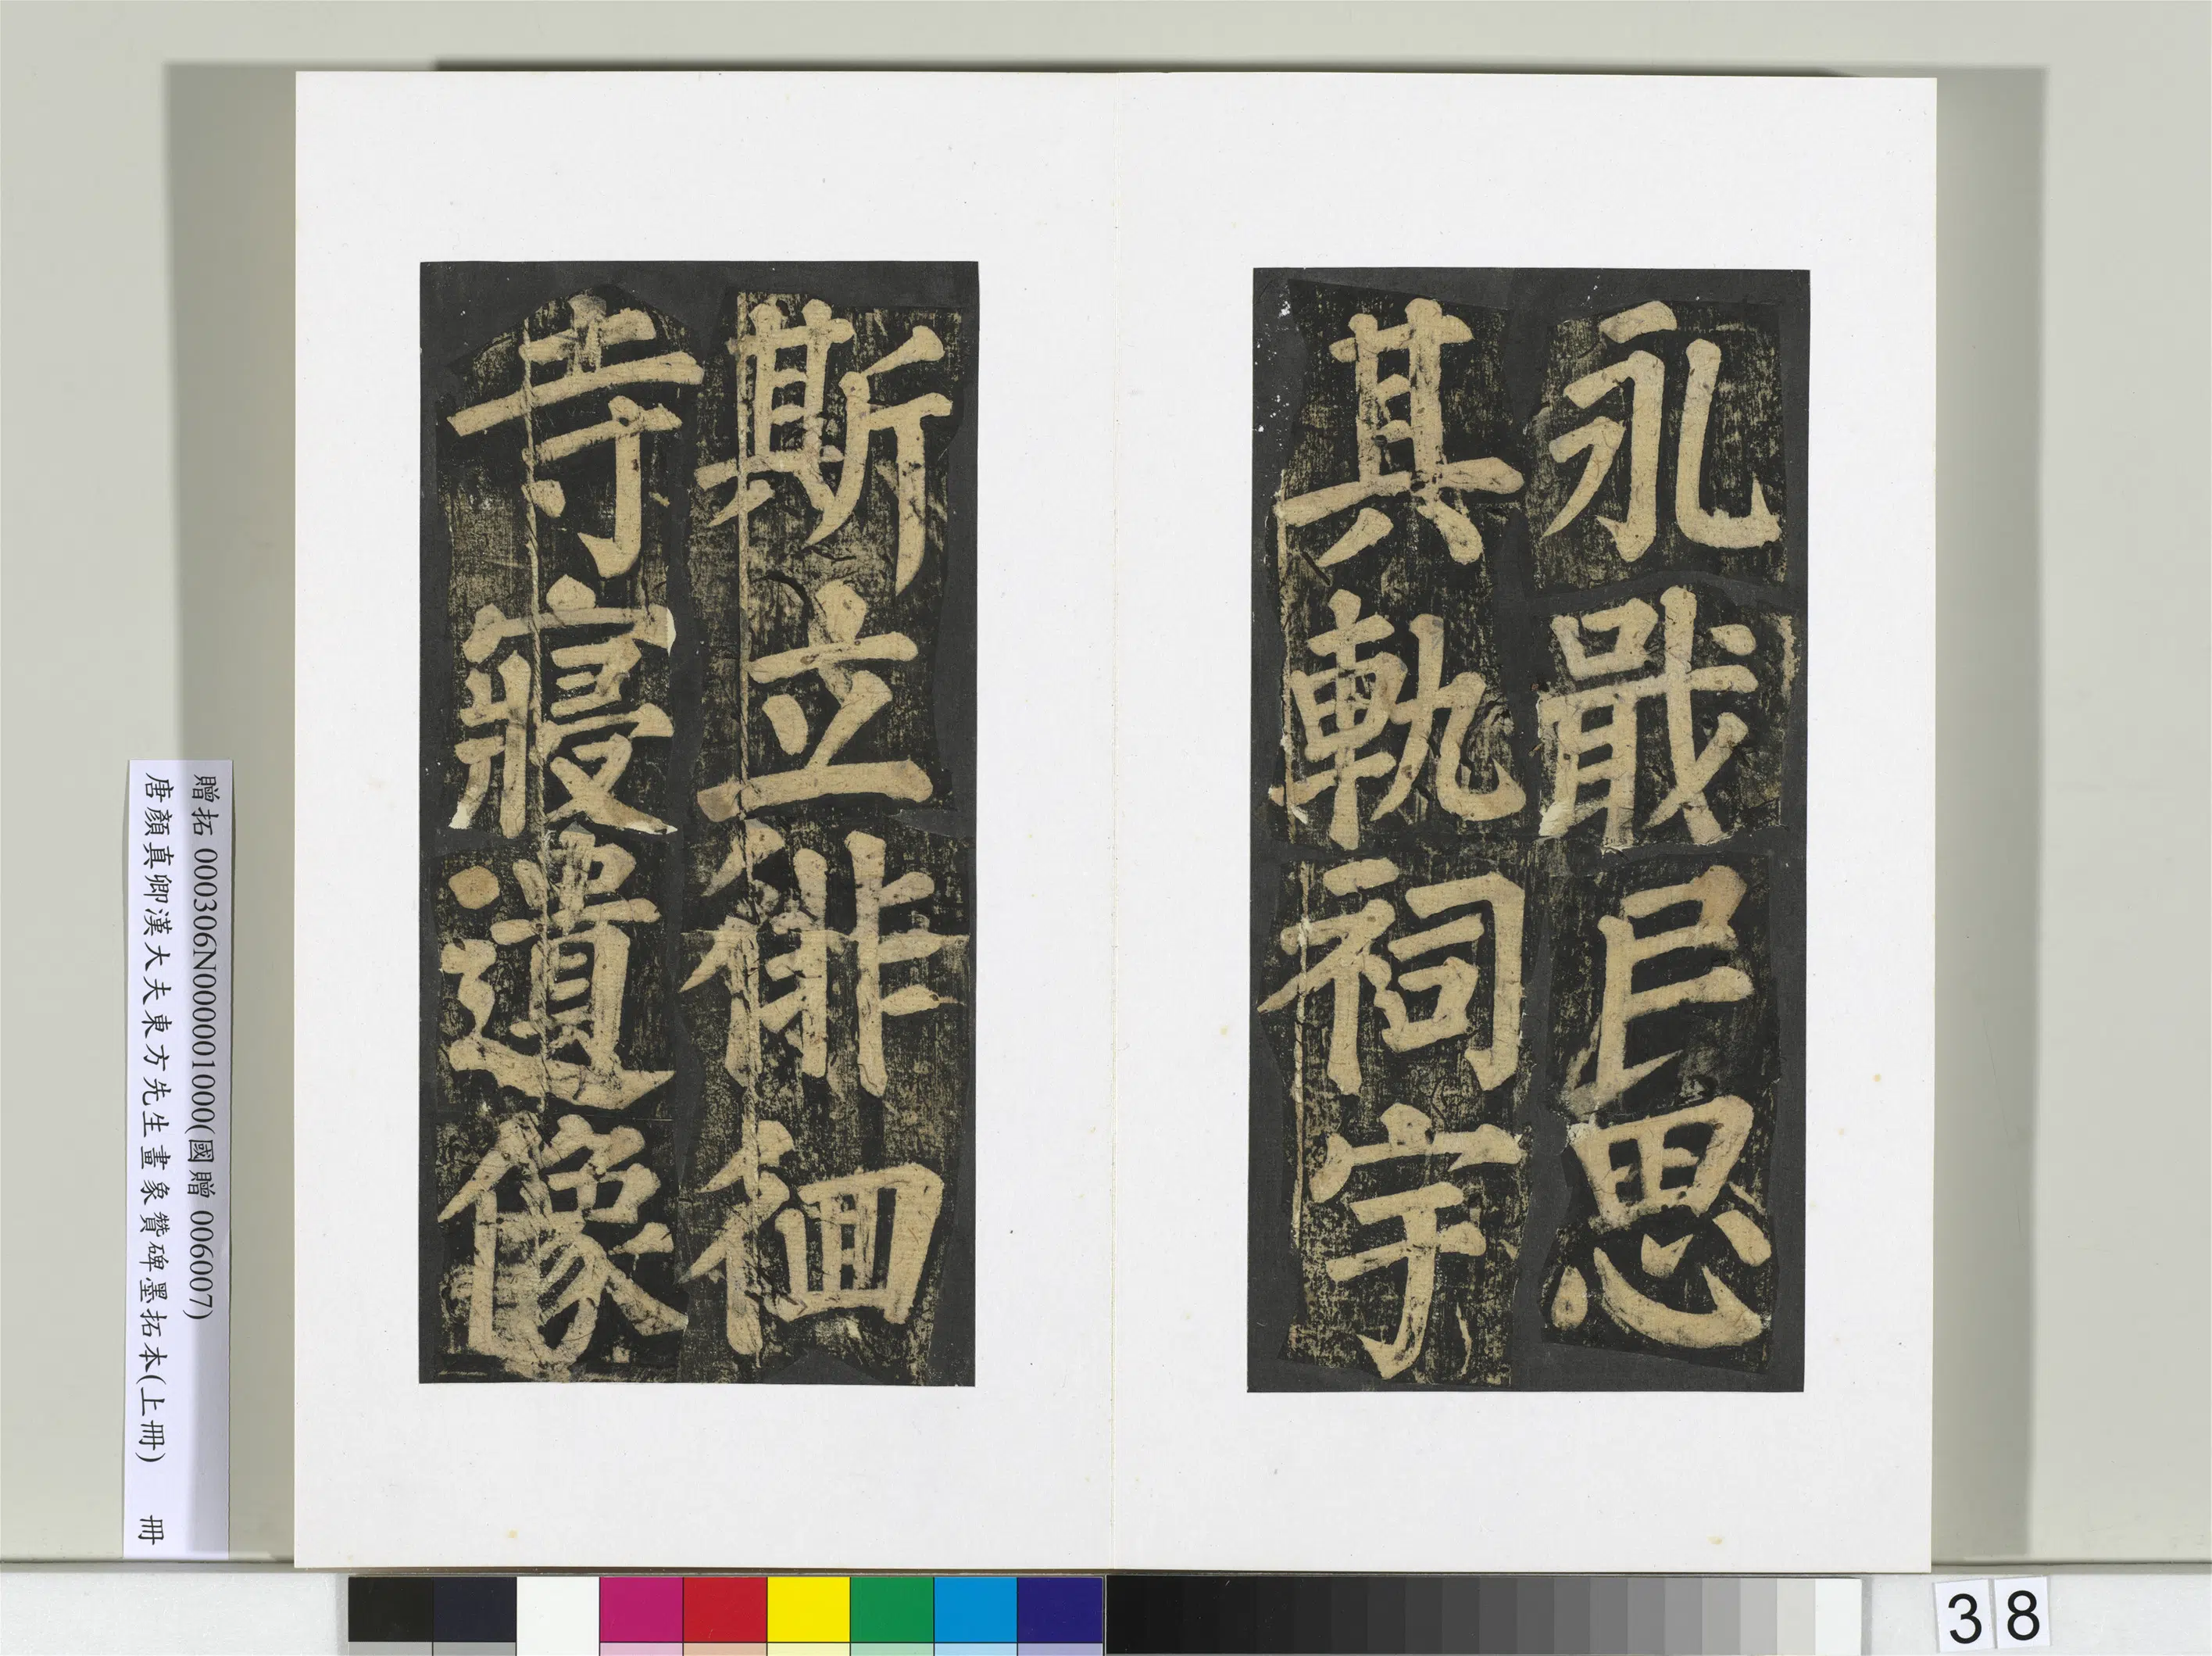 永戢民思
其軌祠宇
斯立徘徊
寺寢遺像
贈拓 000306N000001000(國贈 006007)
唐顏真卿漢大夫東方先生畫象贊碑墨拓本(上冊) 冊
38